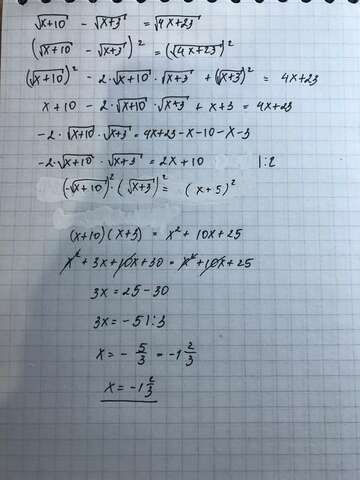 √x+10 - √x+3 = √4x+23
(√x+10 - √x+3)² = (√4x+23)²
(√x+10)² - 2·√x+10 · √x+3 + (√x+3)² = 4x+23
x+10 - 2·√x+10 · √x+3 + x+3 = 4x+23
-2·√x+10 · √x+3 = 4x+23-x-10-x-3
-2·√x+10 · √x+3 = 2x+10 |:2
(-√x+10)² · (√x+3)² = (x+5)²
(x+10)(x+3) = x²+10x+25
x²+3x+10x+30 = x²+10x+25
3x = 25-30
3x = -5 |:3
x = - 5/3 = -1 2/3
x = -1 2/3